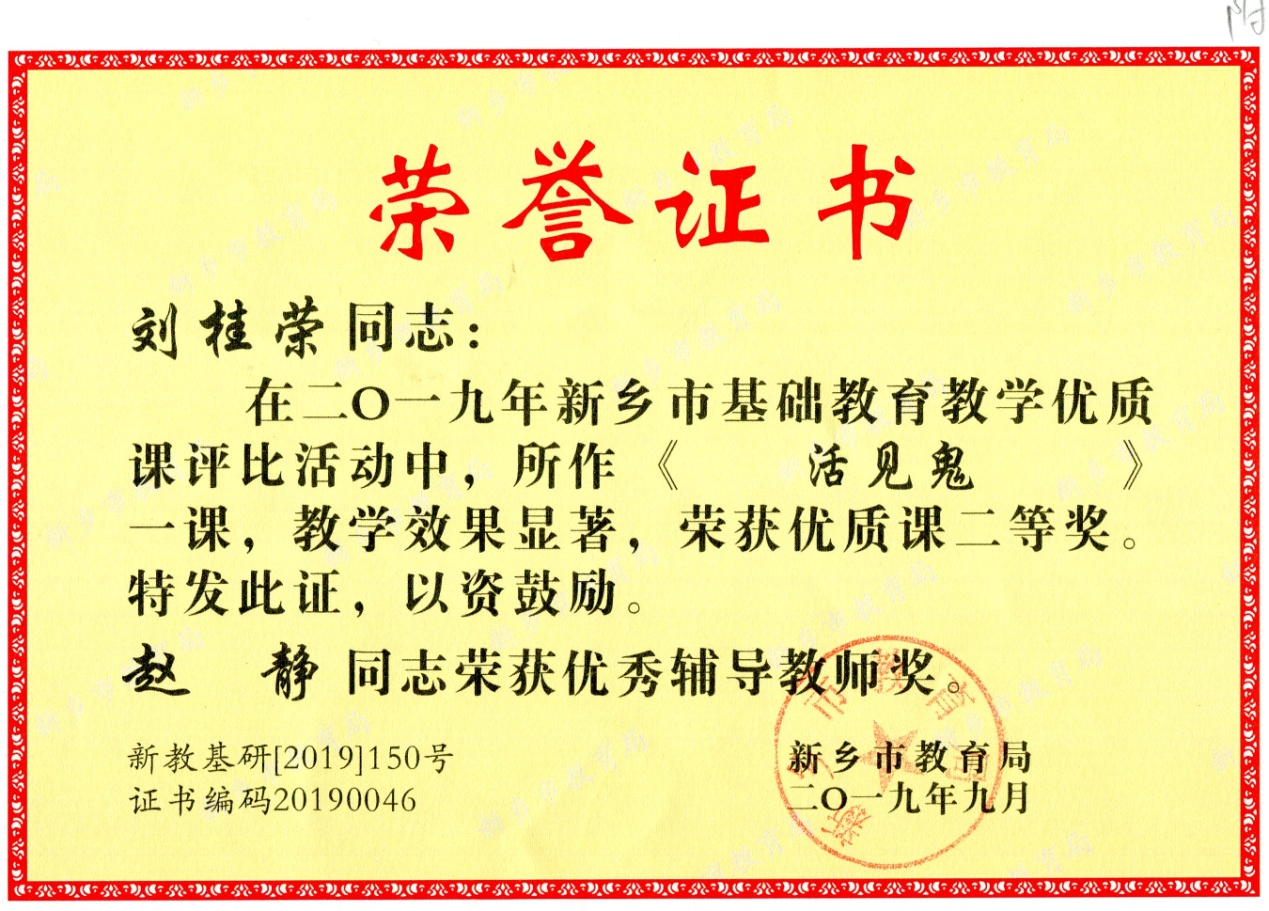 附
荣誉证书
刘桂荣同志：
在二〇一九年新乡市基础教育教学优质
课评比活动中，所作《 活见鬼 》
一课，教学效果显著，荣获优质课二等奖。
特发此证，以资鼓励。
赵 静 同志荣获优秀辅导教师奖。
新教基研[2019]150号
证书编码20190046
新乡市教育局
二〇一九年九月
新乡市教育局